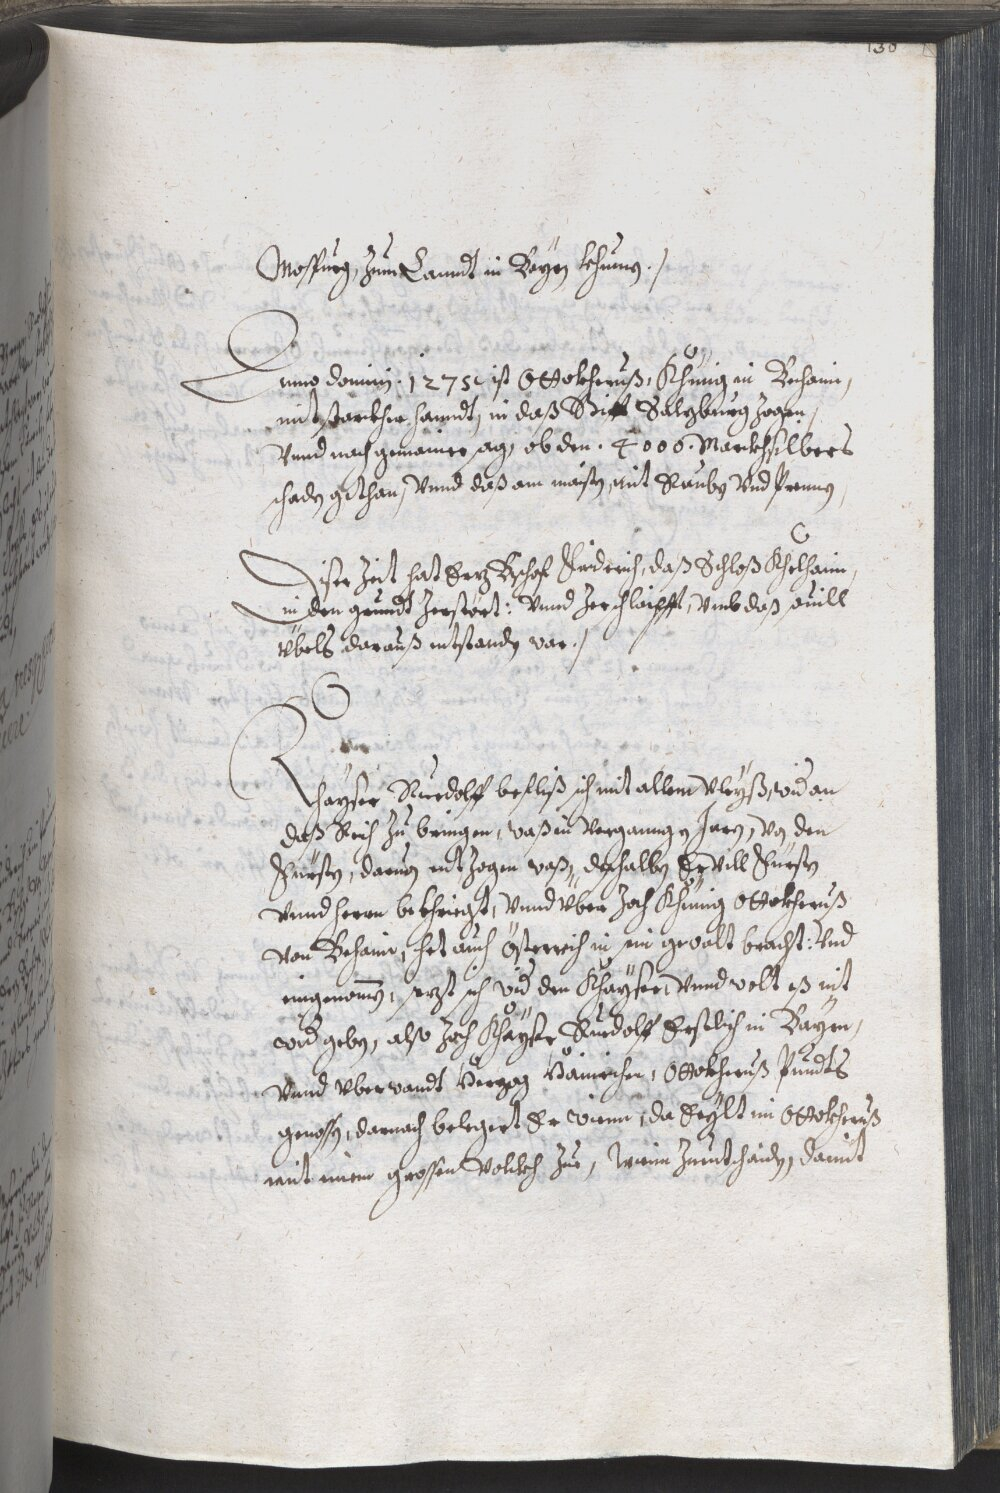 130
Mospurg, zum Lanndt in Bayrn khumen./
Anno domini. 1275. ist Ottokherus, Khünig in Behaim,
mit starkher hanndt, in daß Stifft Saltzburg zogen,
Vnnd nach gemainer sag, ob den. 4000. Markh silbers
schadn gethan, Vnnd daß am maistn mit Raubn Vnd Prennen,
Diser Zeit hat Ertz Bschof Fridrich, daß Schloß Khelhaim,
in den grundt zerstört: Vnnd zerschlaipfft, Vmb daß souill
übels darauß entstandn war./
Khayser Ruedolff befliß sich mit allem Vleyß, wid an
daß Reich zu bringen, waß in Vergangnen Jarn, Von den
Fürstn, daruon entzogen waß, deßhalbn Er Vill Fürstn
Vnnd herrn bekhriegt, Vnnd Vber zoch Khünig Ottokheruß
von Behaim, het auch Österreich in sein gewalt bracht: Vnd
eingenomen, setzt sich wid den Khayser, Vnnd wolt eß nit
wid gebn, also zoch Khayser Ruedolff Erstlich in Bayrn,
Vnnd Vberwandt Hertzog Hainrichen, Ottokheruß Pundts
genossn, darnach belegert Er wienn, da Eylt im Ottokheruß
mit einem grossen Volckh zue, Wienn zuentschaidn, damit